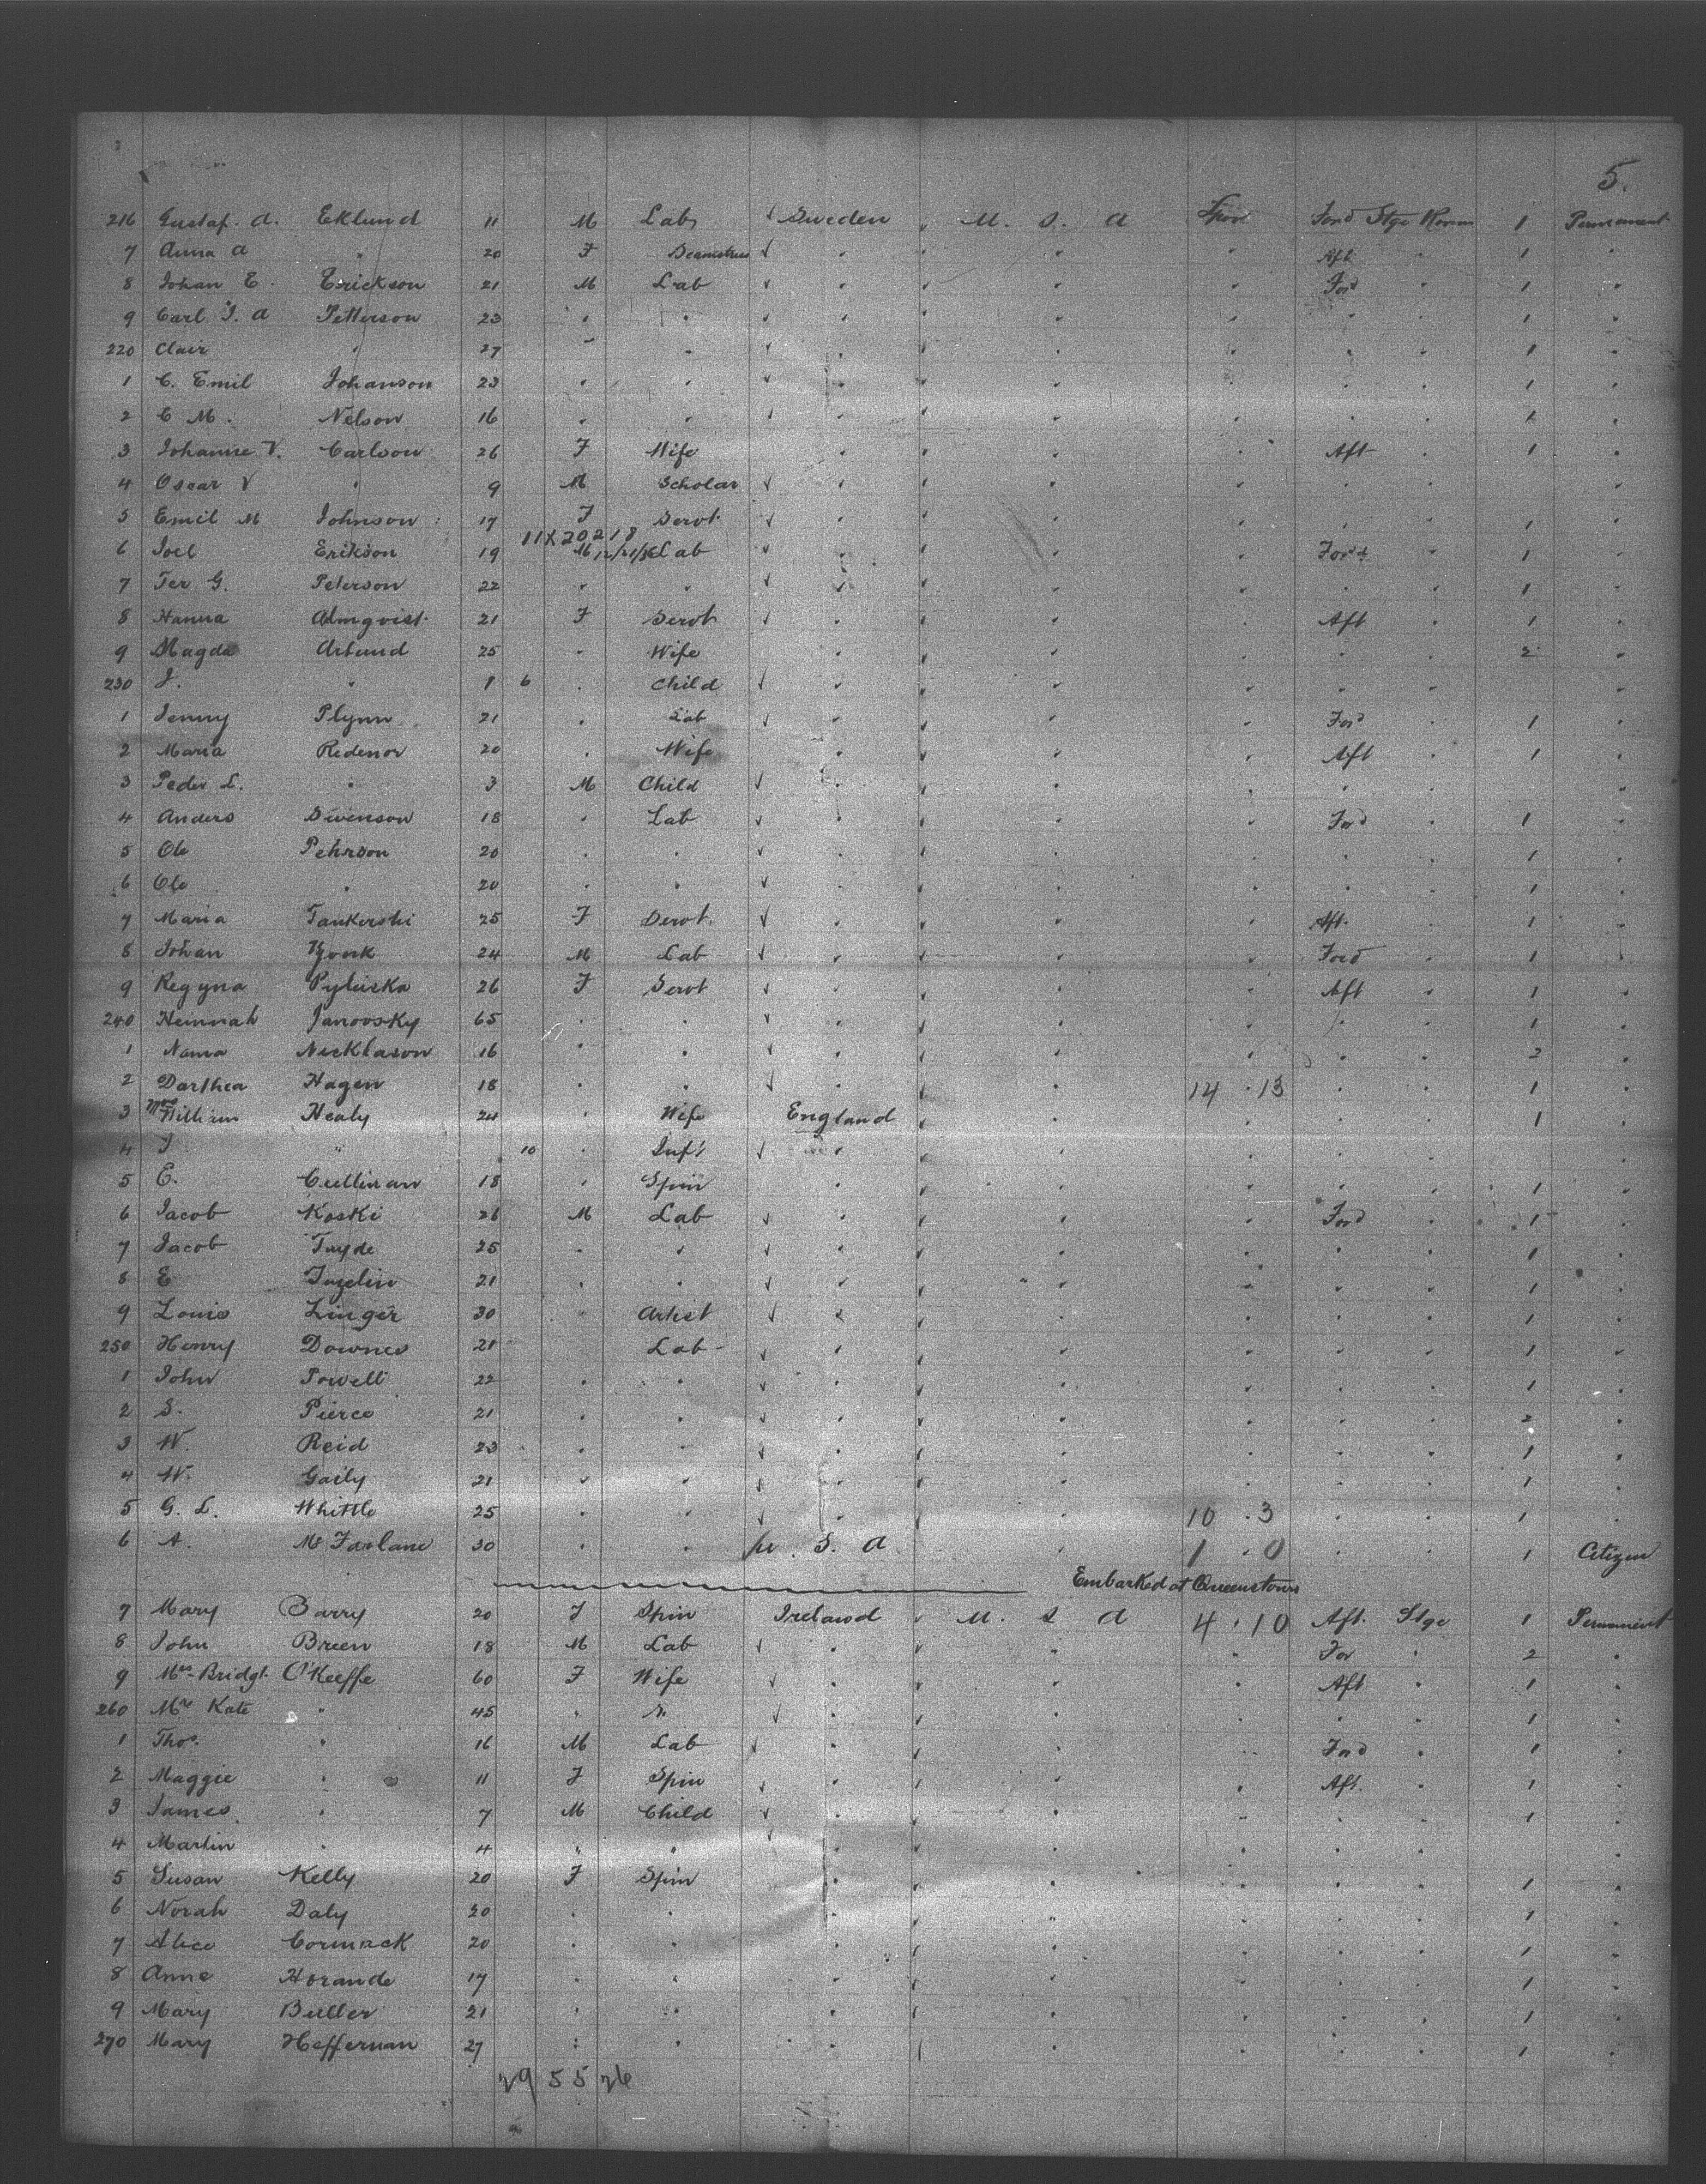 5.
216 Gustaf. A. Eklund 11 M Lab ✓ Sweden U. S. A Lpool Ford Stge Room 1 Permanent
7 Anna A " 20 F Seamstress ✓ " " " Aft " 1 "
8 Johan E. Erickson 21 M Lab ✓ " " " Ford " 1 "
9 Carl J. A Petterson 23 " " ✓ " " " " " 1 "
220 Clair " 27 " " ✓ " " " " " 1 "
1 C. Emil Johanson 23 " " ✓ " " " " " 1 "
2 C M. Nelson 16 " " ✓ " " " " " 1 "
3 Johanne V. Carlson 26 F Wife " " " Aft " 1 "
4 Oscar V " 9 M Scholar ✓ " " " " " "
5 Emil M Johnson 17 F Servt ✓ " " " " " 1 "
11X20218
6 Joel Erikson 19 M 12/21/36 Lab ✓ " " " Ford " 1 "
7 Ter G. Peterson 22 " " ✓ " " " " " 1 "
8 Hanna Almqvist 21 F Servt ✓ " " " Aft " 1 "
9 Magda Arlund 25 " Wife " " " " " 2 "
230 J. " 1 6 " Child ✓ " " " " " "
1 Jenny Plynn 21 " Lab ✓ " " " Ford " 1 "
2 Maria Redenor 20 " Wife " " " Aft " 1 "
3 Peder L. " 3 M Child ✓ " " " " " "
4 Anders Swenson 18 " Lab ✓ " " " Ford " 1 "
5 Ole Pehrson 20 " " ✓ " " " " " 1 "
6 Ole " 20 " " ✓ " " " " " 1 "
7 Maria Tankerski 25 F Servt. ✓ " " " Aft. " 1 "
8 Johan 24 M Lab ✓ " " " Ford " 1 "
9 Regyna Pyluska 26 F Servt ✓ " " " Aft " 1 "
240 Heinnah Janovsky 65 " " ✓ " " " " " 1 "
1 Nama Nicklason 16 " " ✓ " " " " " 2 "
2 Darthea Hagen 18 " " ✓ " " 14 . 13 " " 1 "
3 Mrs William Healy 24 " Wife England " " " " 1 "
4 J " 10 " Inft ✓ " " " " " "
5 E. Cullinan 18 " Spin " " " " " 1 "
6 Jacob Koski 26 M Lab ✓ " " " Ford " 1 "
7 Jacob Tayde 25 " " ✓ " " " " " 1 "
8 E 21 " " ✓ " " " " " 1 "
9 Louis Linger 30 " Artist ✓ " " " " " 1 "
250 Henry Downes 21 Lab ✓ " " " " " 1 "
1 John Powell 22 " " ✓ " " " " " 1 "
2 S. Pierce 21 " " ✓ " " " " " 2 "
3 W. Reid 23 " " ✓ " " " " " 1 "
4 W. Gaily 21 " " ✓ " " " " " 1 "
5 G. L. Whittle 25 " " ✓ " " 10 . 3 " " 1 "
6 A. McFarlane 30 " " U. S. A " 1 . 0 " " 1 Citizen
Embarked at Queenstown
7 Mary Barry 20 F Spin Ireland U. S. A 4 . 10 Aft. Stge 1 Permanent
8 John Breen 18 M Lab ✓ " " " For " 2 "
9 Mrs Bridgt. O'Keeffe 60 F Wife ✓ " " " Aft " 1 "
260 Mrs Kate " 45 " " ✓ " " " " " 1 "
1 Thos. " 16 M Lab ✓ " " " Ford " 1 "
2 Maggie " 11 F Spin ✓ " " " Aft. " 1 "
3 James " 7 M Child ✓ " " " " " 1 "
4 Martin " 4 " " ✓ " " " " " "
5 Susan Kelly 20 F Spin " " " " " 1 "
6 Norah Daly 20 " " " " " " " 1 "
7 Alice Cormack 20 " " " " " " " 1 "
8 Anne Horande 17 " " " " " " " 1 "
9 Mary Butler 21 " " " " " " " 1 "
270 Mary Heffernan 27 " " " " " " " 1 "
29 55 26